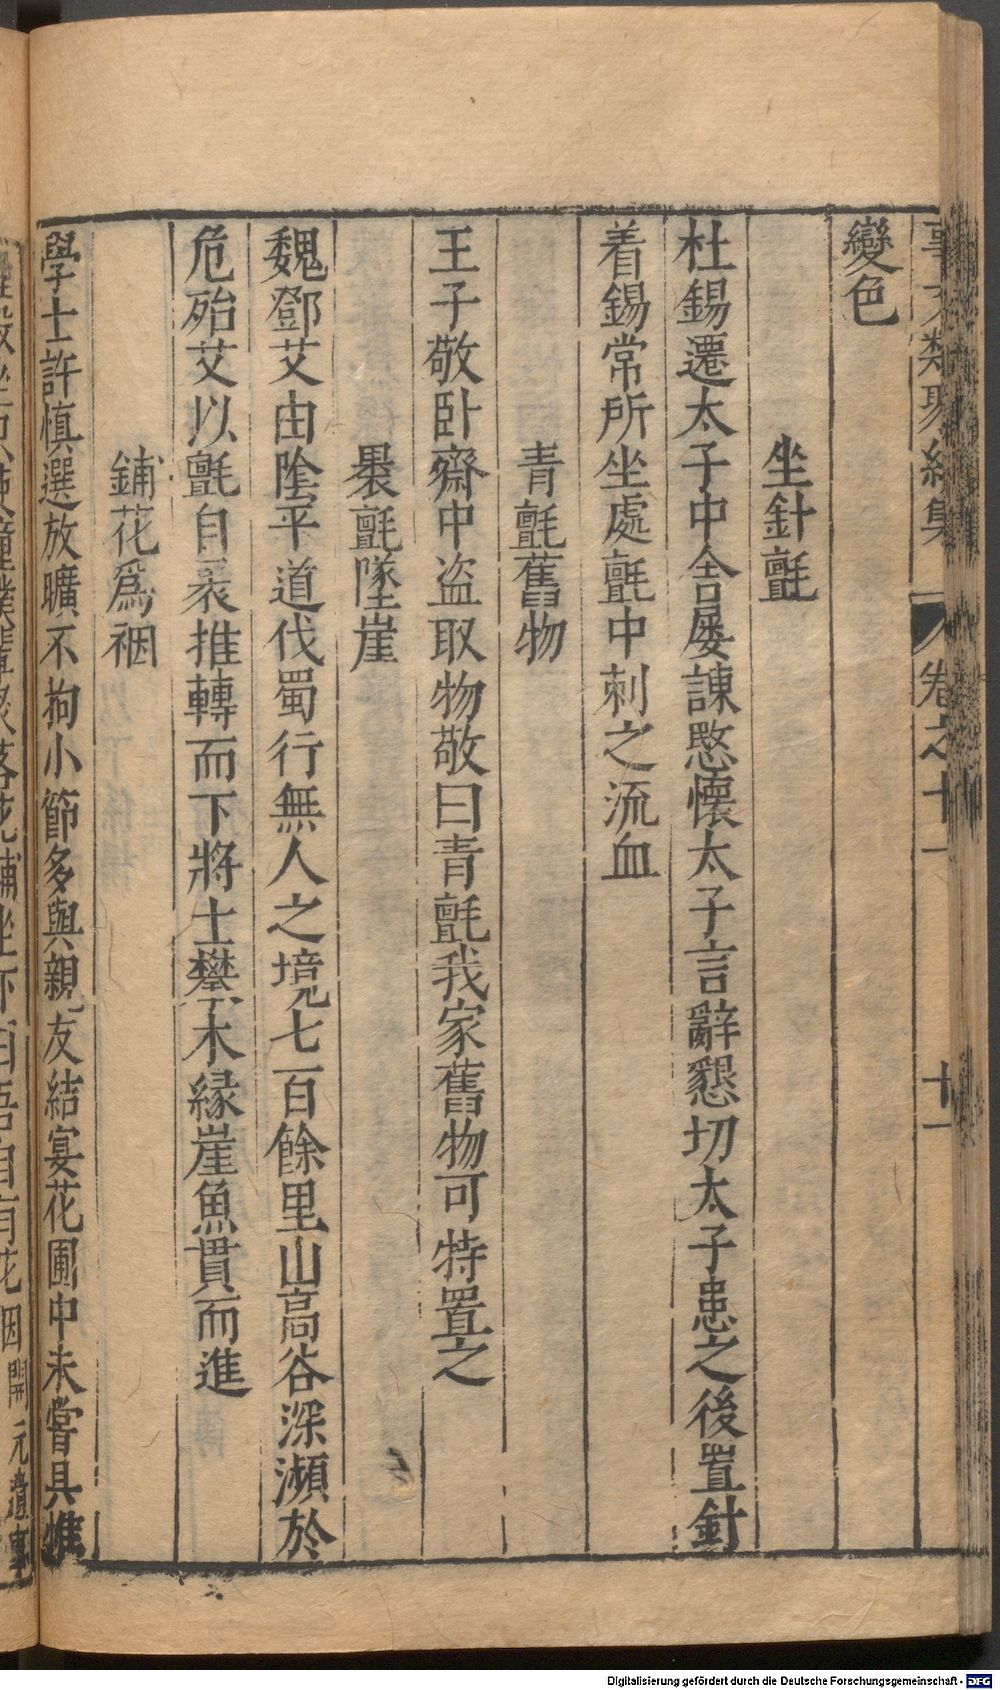 事文類聚續集 卷之十一 十一
變色
坐針氈
杜錫遷太子中舍屢諫愍懷太子言辭懇切太子患之後置針
着錫常所坐處氈中刺之流血
青氈舊物
王子敬卧齋中盗取物敬曰青氈我家舊物可特置之
褁氈墜崖
魏鄧艾由隂平道伐蜀行無人之境七百餘里山高谷深瀕於
危殆艾以氈自裹推轉而下將士攀木緣崖魚貫而進
鋪花爲裀
學士許慎選放曠不拘小節多與親友結宴花圃中未嘗具帷
落花鋪坐下曰吾自有花裀開元遺事
Digitalisierung gefördert durch die Deutsche Forschungsgemeinschaft - DFG